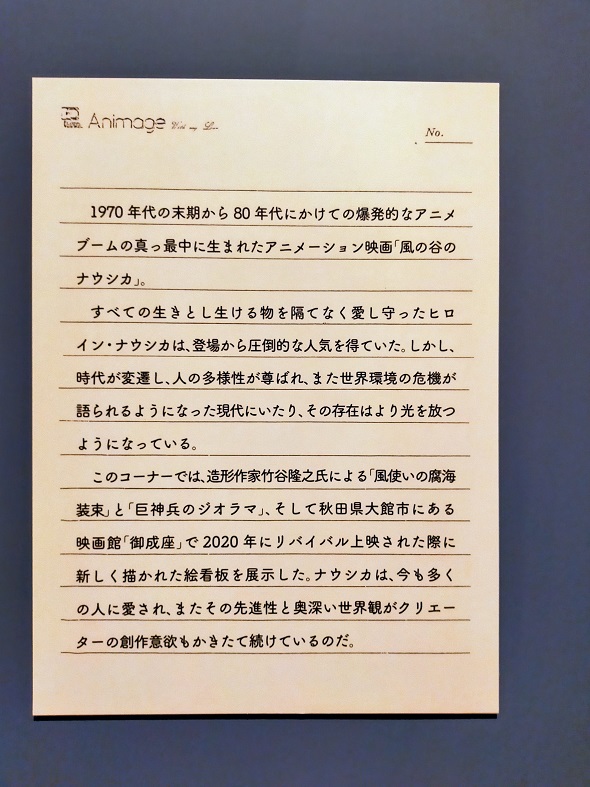 Animage
No.
1970年代の末期から80年代にかけての爆発的なアニメ
ブームの真っ最中に生まれたアニメーション映画「風の谷の
ナウシカ」。
すべての生きとし生ける物を隔てなく愛し守ったヒロ
イン・ナウシカは、登場から圧倒的な人気を得ていた。しかし、
時代が変遷し、人の多様性が尊ばれ、また世界環境の危機が
語られるようになった現代にいたり、その存在はより光を放つ
ようになっている。
このコーナーでは、造形作家竹谷隆之氏による「風使いの腐海
装束」と「巨神兵のジオラマ」、そして秋田県大館市にある
映画館「御成座」で2020年にリバイバル上映された際に
新しく描かれた絵看板を展示した。ナウシカは、今も多く
の人に愛され、またその先進性と奥深い世界観がクリエー
ターの創作意欲もかきたて続けているのだ。